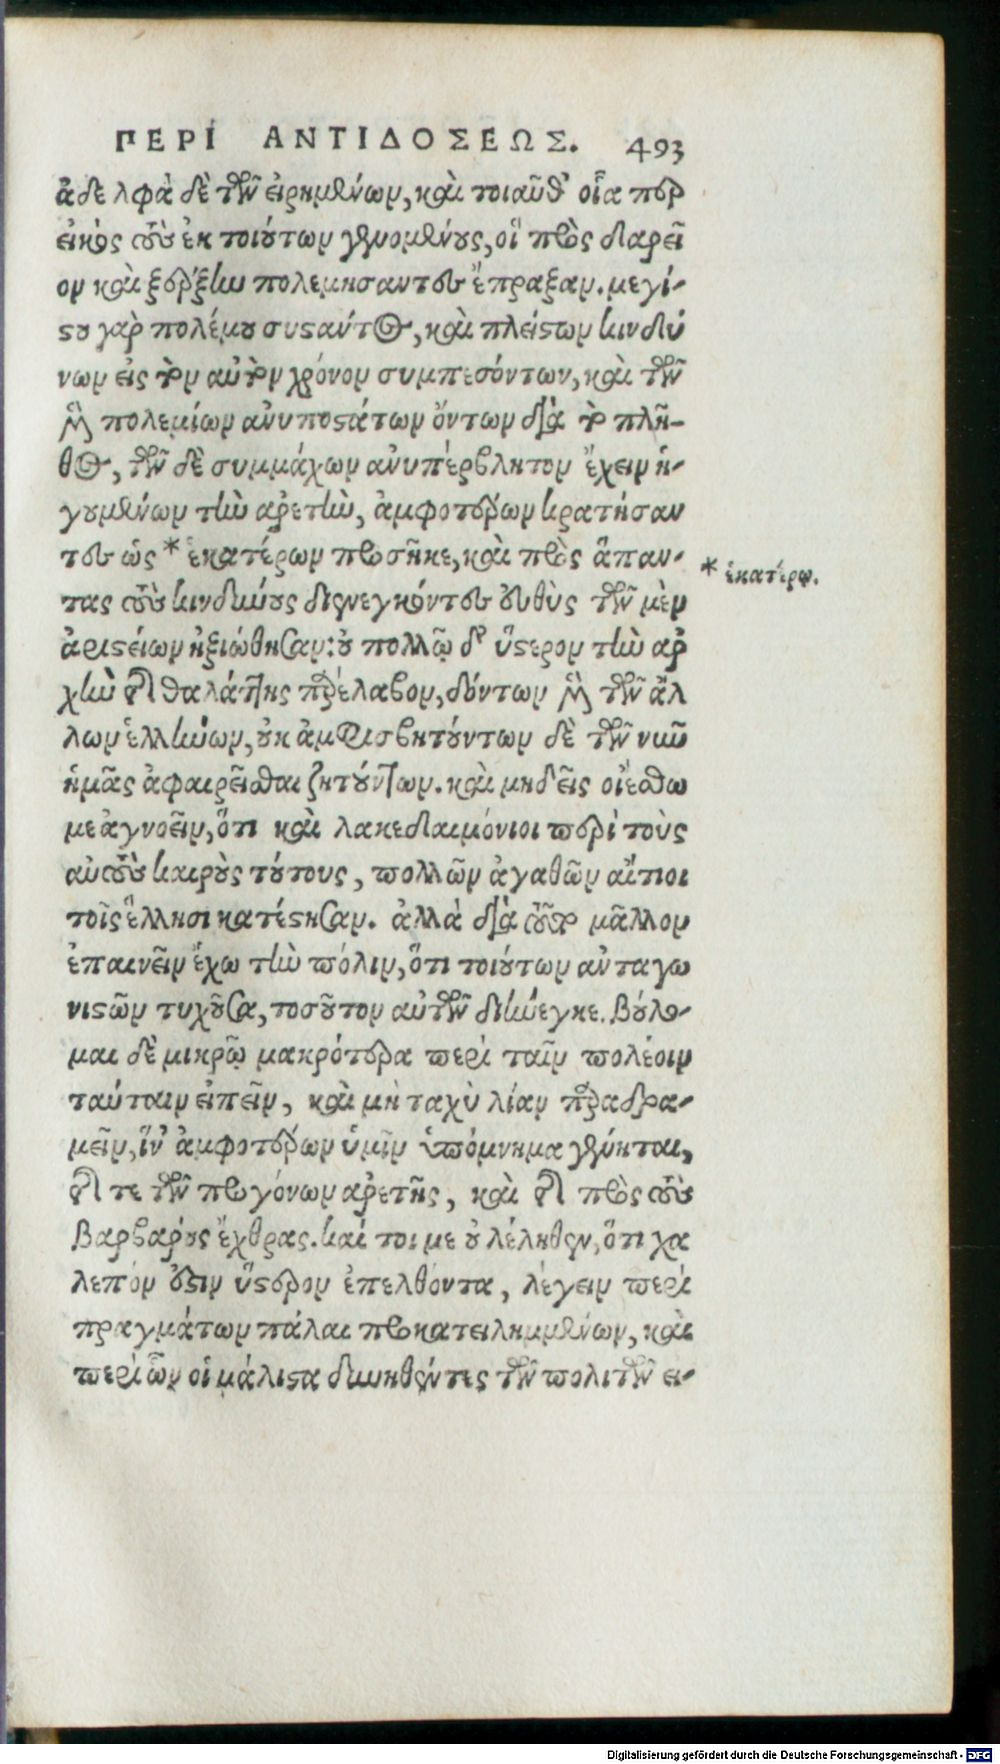 ΠΕΡΙ ΑΝΤΙΔΟΣΕΩΣ. 493
ἀδελφὰ δὲ τῶν εἰρημένων, καὶ τοιαῦθ' οἷα περ
εἰκὸς τοὺς ἐκ τοιούτων γενομένους, οἱ πρὸς δαρεῖ
ον καὶ ξέρξην πολεμήσαντες ἔπραξαν. μεγί-
στου γὰρ πολέμου συστάντος, καὶ πλείστων κινδύ
νων εἰς τὸν αὐτὸν χρόνον συμπεσόντων, καὶ τῶν
μὲν πολεμίων ἀνυποστάτων ὄντων διὰ τὸ πλῆ-
θος, τῶν δὲ συμμάχων ἀνυπέρβλητον ἔχειν ἡ-
γουμένων τὴν ἀρετὴν, ἀμφοτέρων κρατήσαν
τες ὡς * ἑκατέρων προσῆκε, καὶ πρὸς ἅπαν-
* ἑκατέρῳ.
τας τοὺς κινδύνους διενεγκόντες εὐθὺς τῶν μὲν
ἀριστείων ἠξιώθησαν: οὐ πολλῷ δ' ὕστερον τὴν ἀρ
χὴν τῆς θαλάττης προέλαβον, δόντων μὲν τῶν ἄλ
λων ἑλλήνων, οὐκ ἀμφισβητούντων δὲ τῶν νῦν
ἡμᾶς ἀφαιρεῖσθαι ζητούντων. καὶ μηδεὶς οἰέσθω
με ἀγνοεῖν, ὅτι καὶ λακεδαιμόνιοι περὶ τοὺς
αὐτοὺς καιροὺς τούτους, πολλῶν ἀγαθῶν αἴτιοι
τοῖς ἕλλησι κατέστησαν. ἀλλὰ διὰ τοῦτο μᾶλλον
ἐπαινεῖν ἔχω τὴν πόλιν, ὅτι τοιούτων ἀνταγω
νιστῶν τυχοῦσα, τοσοῦτον αὐτῶν διήνεγκε. Βούλο-
μαι δὲ μικρῷ μακρότερα περὶ ταῖν πολέοιν
ταύταιν εἰπεῖν, καὶ μὴ ταχὺ λίαν παραδρα-
μεῖν, ἵν' ἀμφοτέρων ὑμῖν ὑπόμνημα γένηται,
τῆς τε τῶν προγόνων ἀρετῆς, καὶ τῆς πρὸς τοὺς
Βαρβάρους ἔχθρας. καί τοι με οὐ λέληθεν, ὅτι χα
λεπόν ἐστιν ὕστερον ἐπελθόντα, λέγειν περὶ
πραγμάτων πάλαι προκατειλημμένων, καὶ
περὶ ὧν οἱ μάλιστα δυνηθέντες τῶν πολιτῶν εἰ-
Digitalisierung gefördert durch die Deutsche Forschungsgemeinschaft - DFG